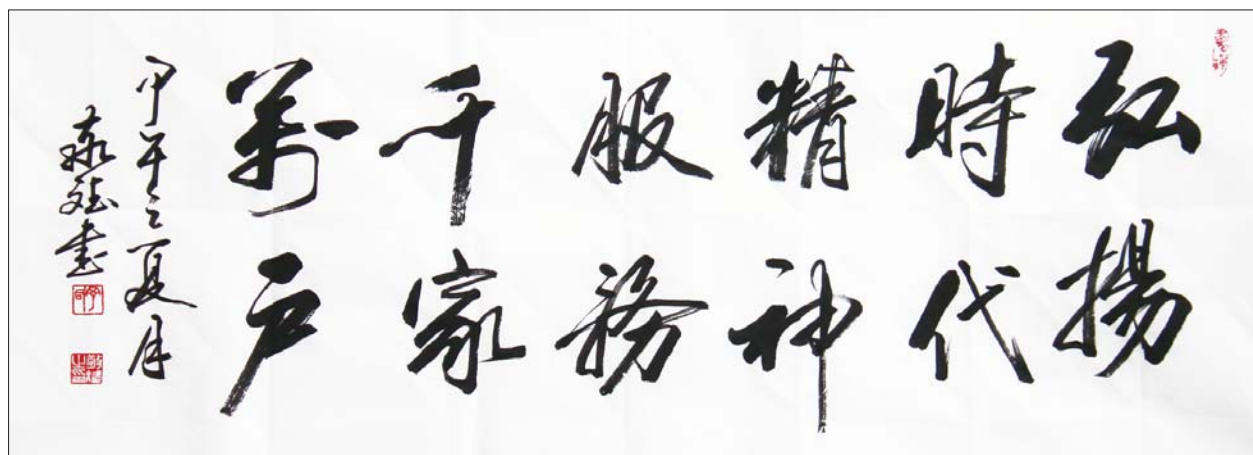 弘揚
時代
精神
服務
千家
萬戶
甲午之夏月
書